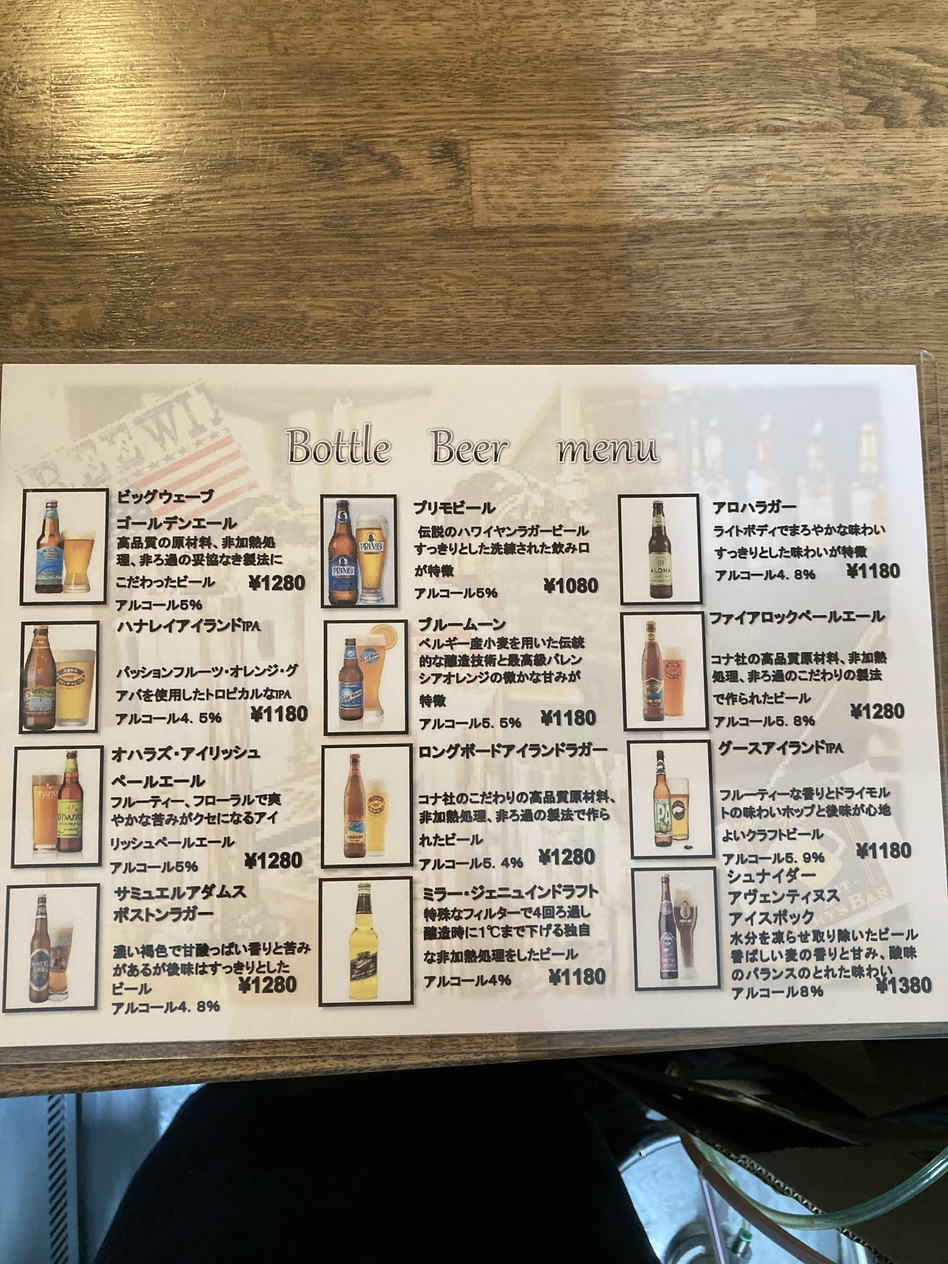 Bottle Beer menu
ビッグウェーブ
ゴールデンエール
高品質の原材料、非加熱処
理、非ろ過の妥協なき製法に
こだわったビール ¥1280
アルコール5%
プリモビール
伝説のハワイヤンラガービール
すっきりとした洗練された飲み口
が特徴
アルコール5% ¥1080
アロハラガー
ライトボディでまろやかな味わい
すっきりとした味わいが特徴
アルコール4.8% ¥1180
ハナレイアイランドIPA
パッションフルーツ・オレンジ・グ
アバを使用したトロピカルなIPA
アルコール4.5% ¥1180
ブルームーン
ベルギー産小麦を用いた伝統
的な醸造技術と最高級バレン
シアオレンジの微かな甘みが
特徴
アルコール5.5% ¥1180
ファイアロックペールエール
コナ社の高品質原材料、非加熱
処理、非ろ過のこだわりの製法
で作られたビール
アルコール5.8% ¥1280
オハラズ・アイリッシュ
ペールエール
フルーティー、フローラルで爽
やかな苦みがクセになるアイ
リッシュペールエール
アルコール5% ¥1280
ロングボードアイランドラガー
コナ社のこだわりの高品質原材料、
非加熱処理、非ろ過の製法で作ら
れたビール
アルコール5.4% ¥1280
グースアイランドIPA
フルーティーな香りとドライモル
トの味わいホップと後味が心地
よいクラフトビール
アルコール5.9% ¥1180
サミュエルアダムス
ボストンラガー
濃い褐色で甘酸っぱい香りと苦み
があるが後味はすっきりとした
ビール
アルコール4.8% ¥1280
ミラー・ジェニュインドラフト
特殊なフィルターで4回ろ過し
醸造時に1℃まで下げる独自
な非加熱処理をしたビール
アルコール4% ¥1180
シュナイダー
アヴェンティヌス
アイスボック
水分を凍らせ取り除いたビール
香ばしい麦の香りと甘み、酸味
のバランスのとれた味わい
アルコール8% ¥1380
PRIMO
PRIMO
ALOHA
IPA